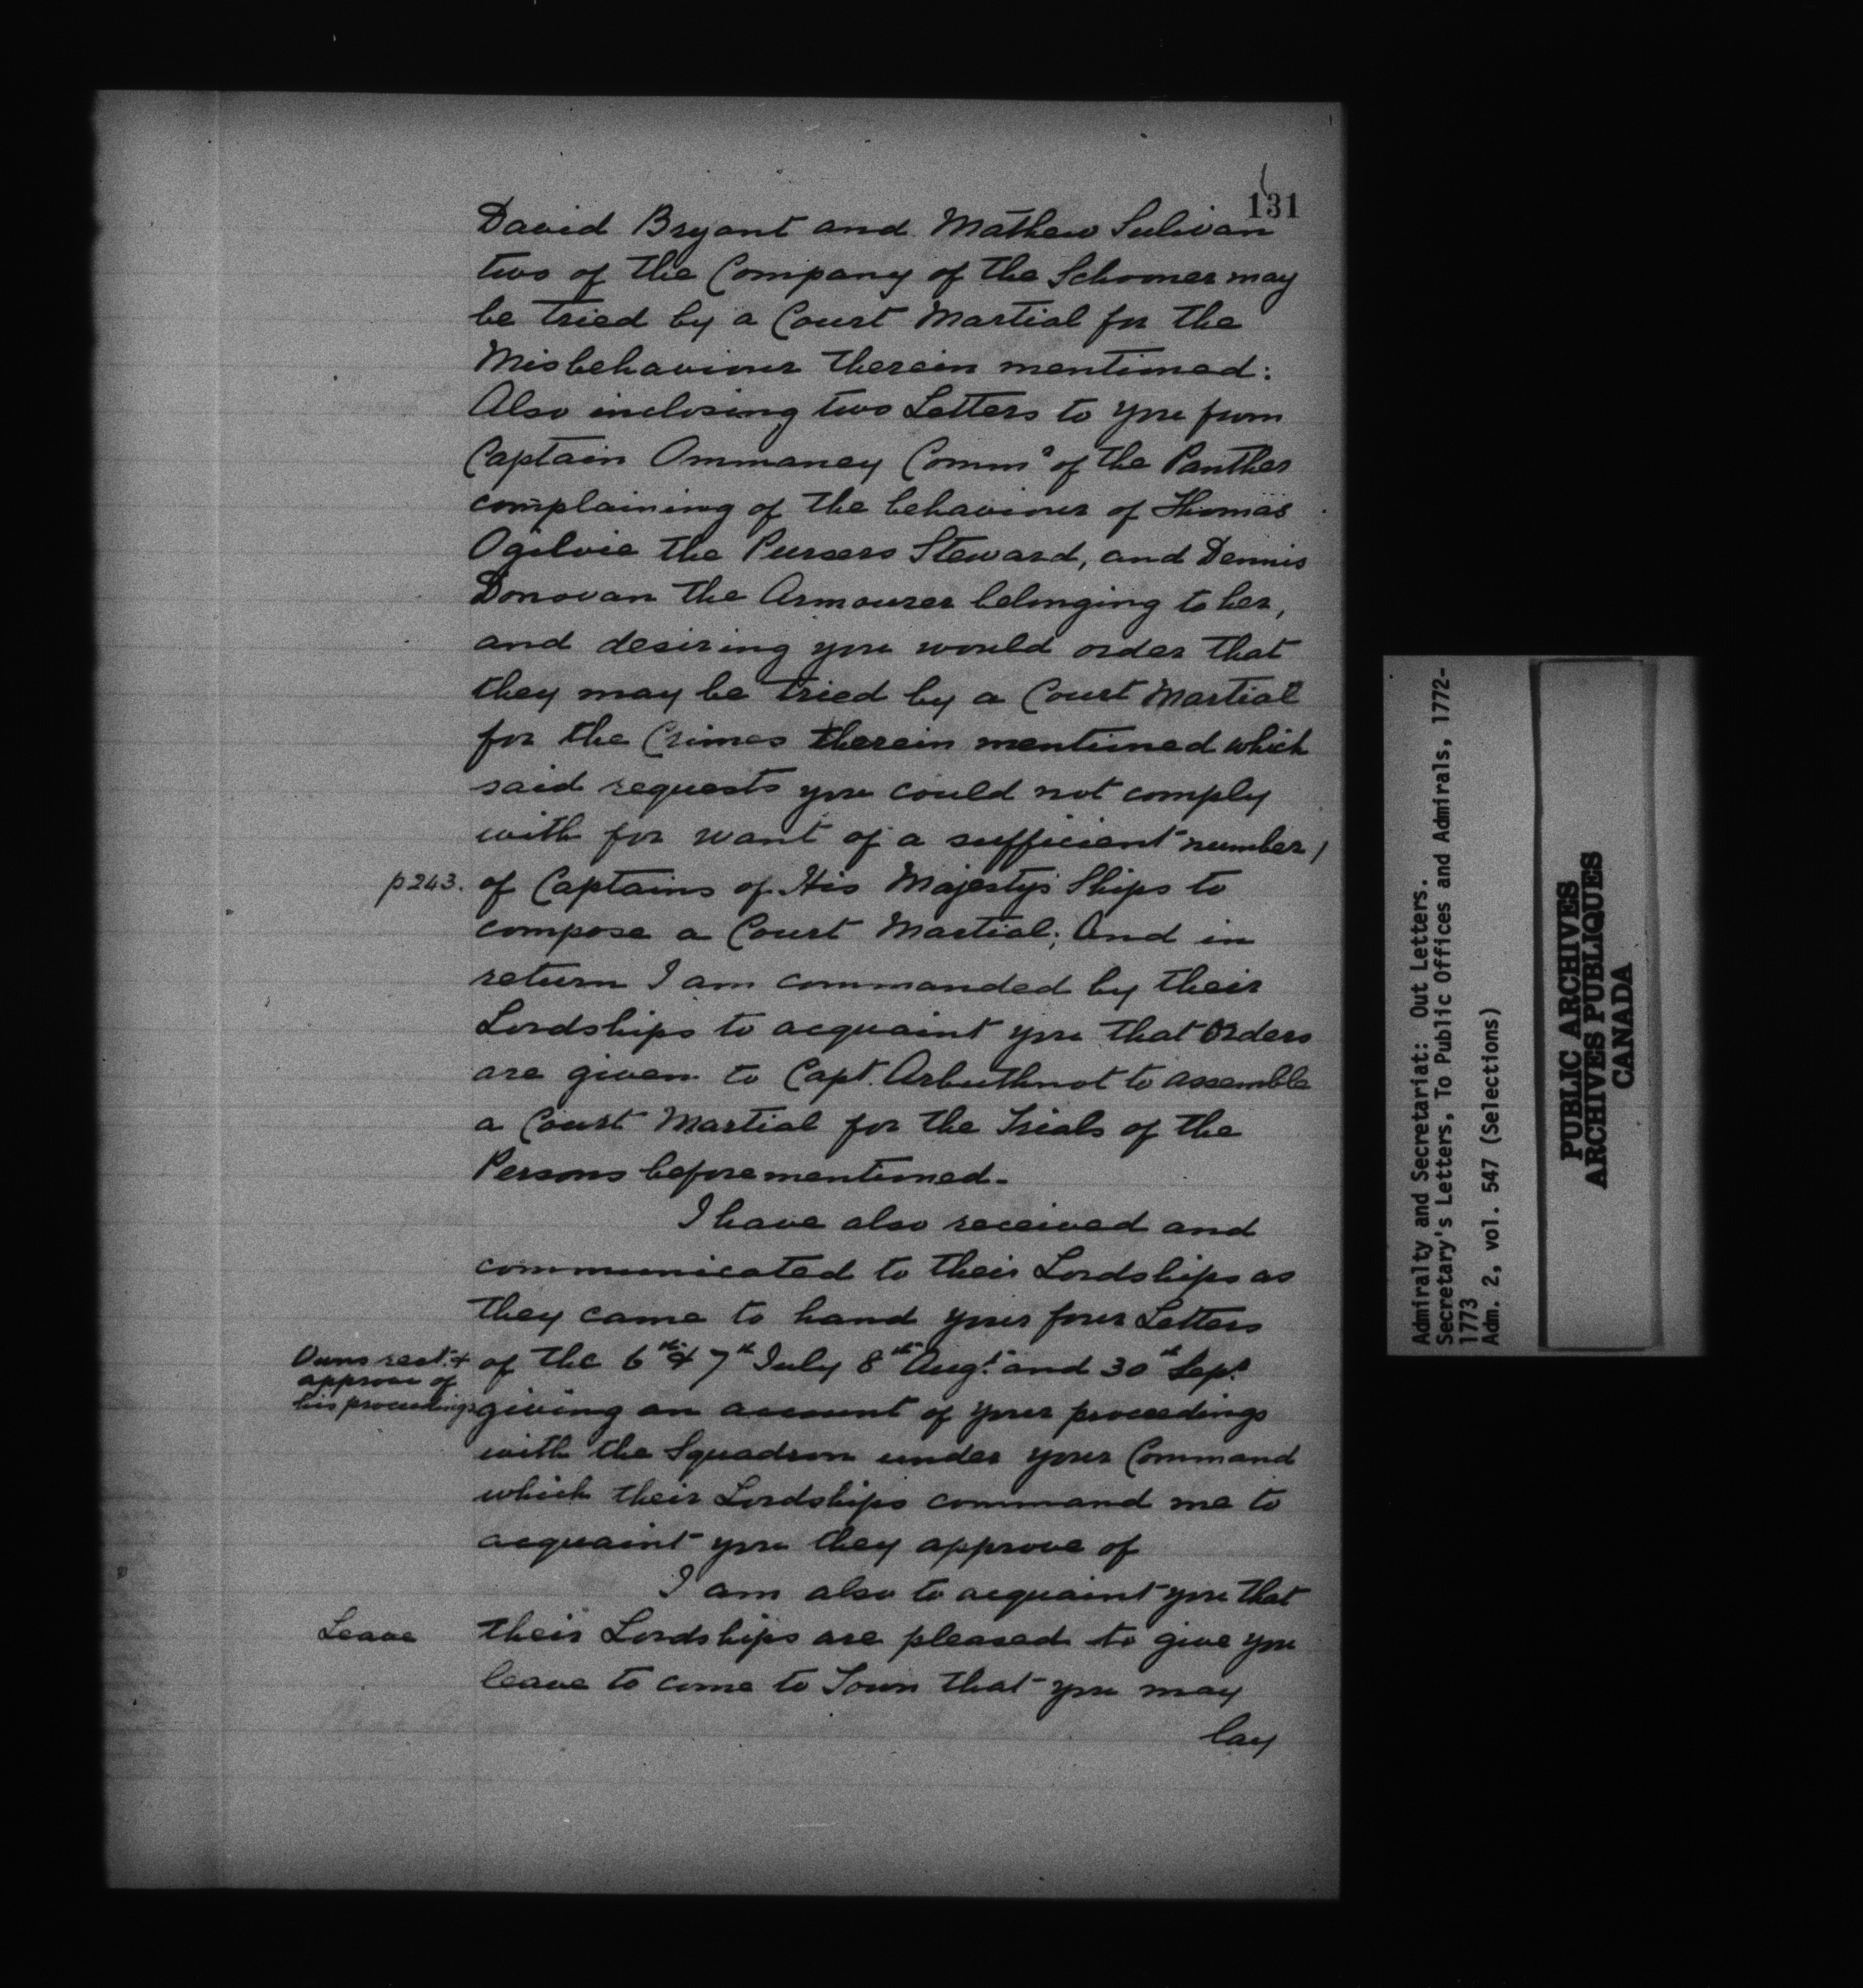 131
David Bryant and Mathew Sulivan
two of the Company of the Schooner may
be tried by a Court Martial for the
Misbehaviour therein mentioned:
Also inclosing two Letters to you from
Captain Ommaney Commr of the Panther
complaining of the behaviour of Thomas
Ogilvie the Pursers Steward, and Dennis
Donovan the Armourer belonging to her,
and desiring you would order that
they may be tried by a Court Martial
for the Crimes therein mentioned which
said requests you could not comply
with for want of a sufficient number /
p243. of Captains of His Majestys Ships to
compose a Court Martial; And in
return I am commanded by their
Lordships to acquaint you that Orders
are given to Capt. Arbuthnot to assemble
a Court Martial for the Trials of the
Persons beforementioned.
I have also received and
communicated to their Lordships as
they came to hand your four Letters
Owns rect. &
approve of
his proceedings
of the 6th & 7th July 8th Augt. and 30th Sept.
giving an account of your proceedings
with the Squadron under your Command
which their Lordships command me to
acquaint you they approve of
I am also to acquaint you that
Leave
their Lordships are pleased to give you
leave to come to Town that you may
lay
Admiralty and Secretariat: Out Letters.
Secretary's Letters, To Public Offices and Admirals, 1772-
1773
Adm. 2, vol. 547 (Selections)
PUBLIC ARCHIVES
ARCHIVES PUBLIQUES
CANADA